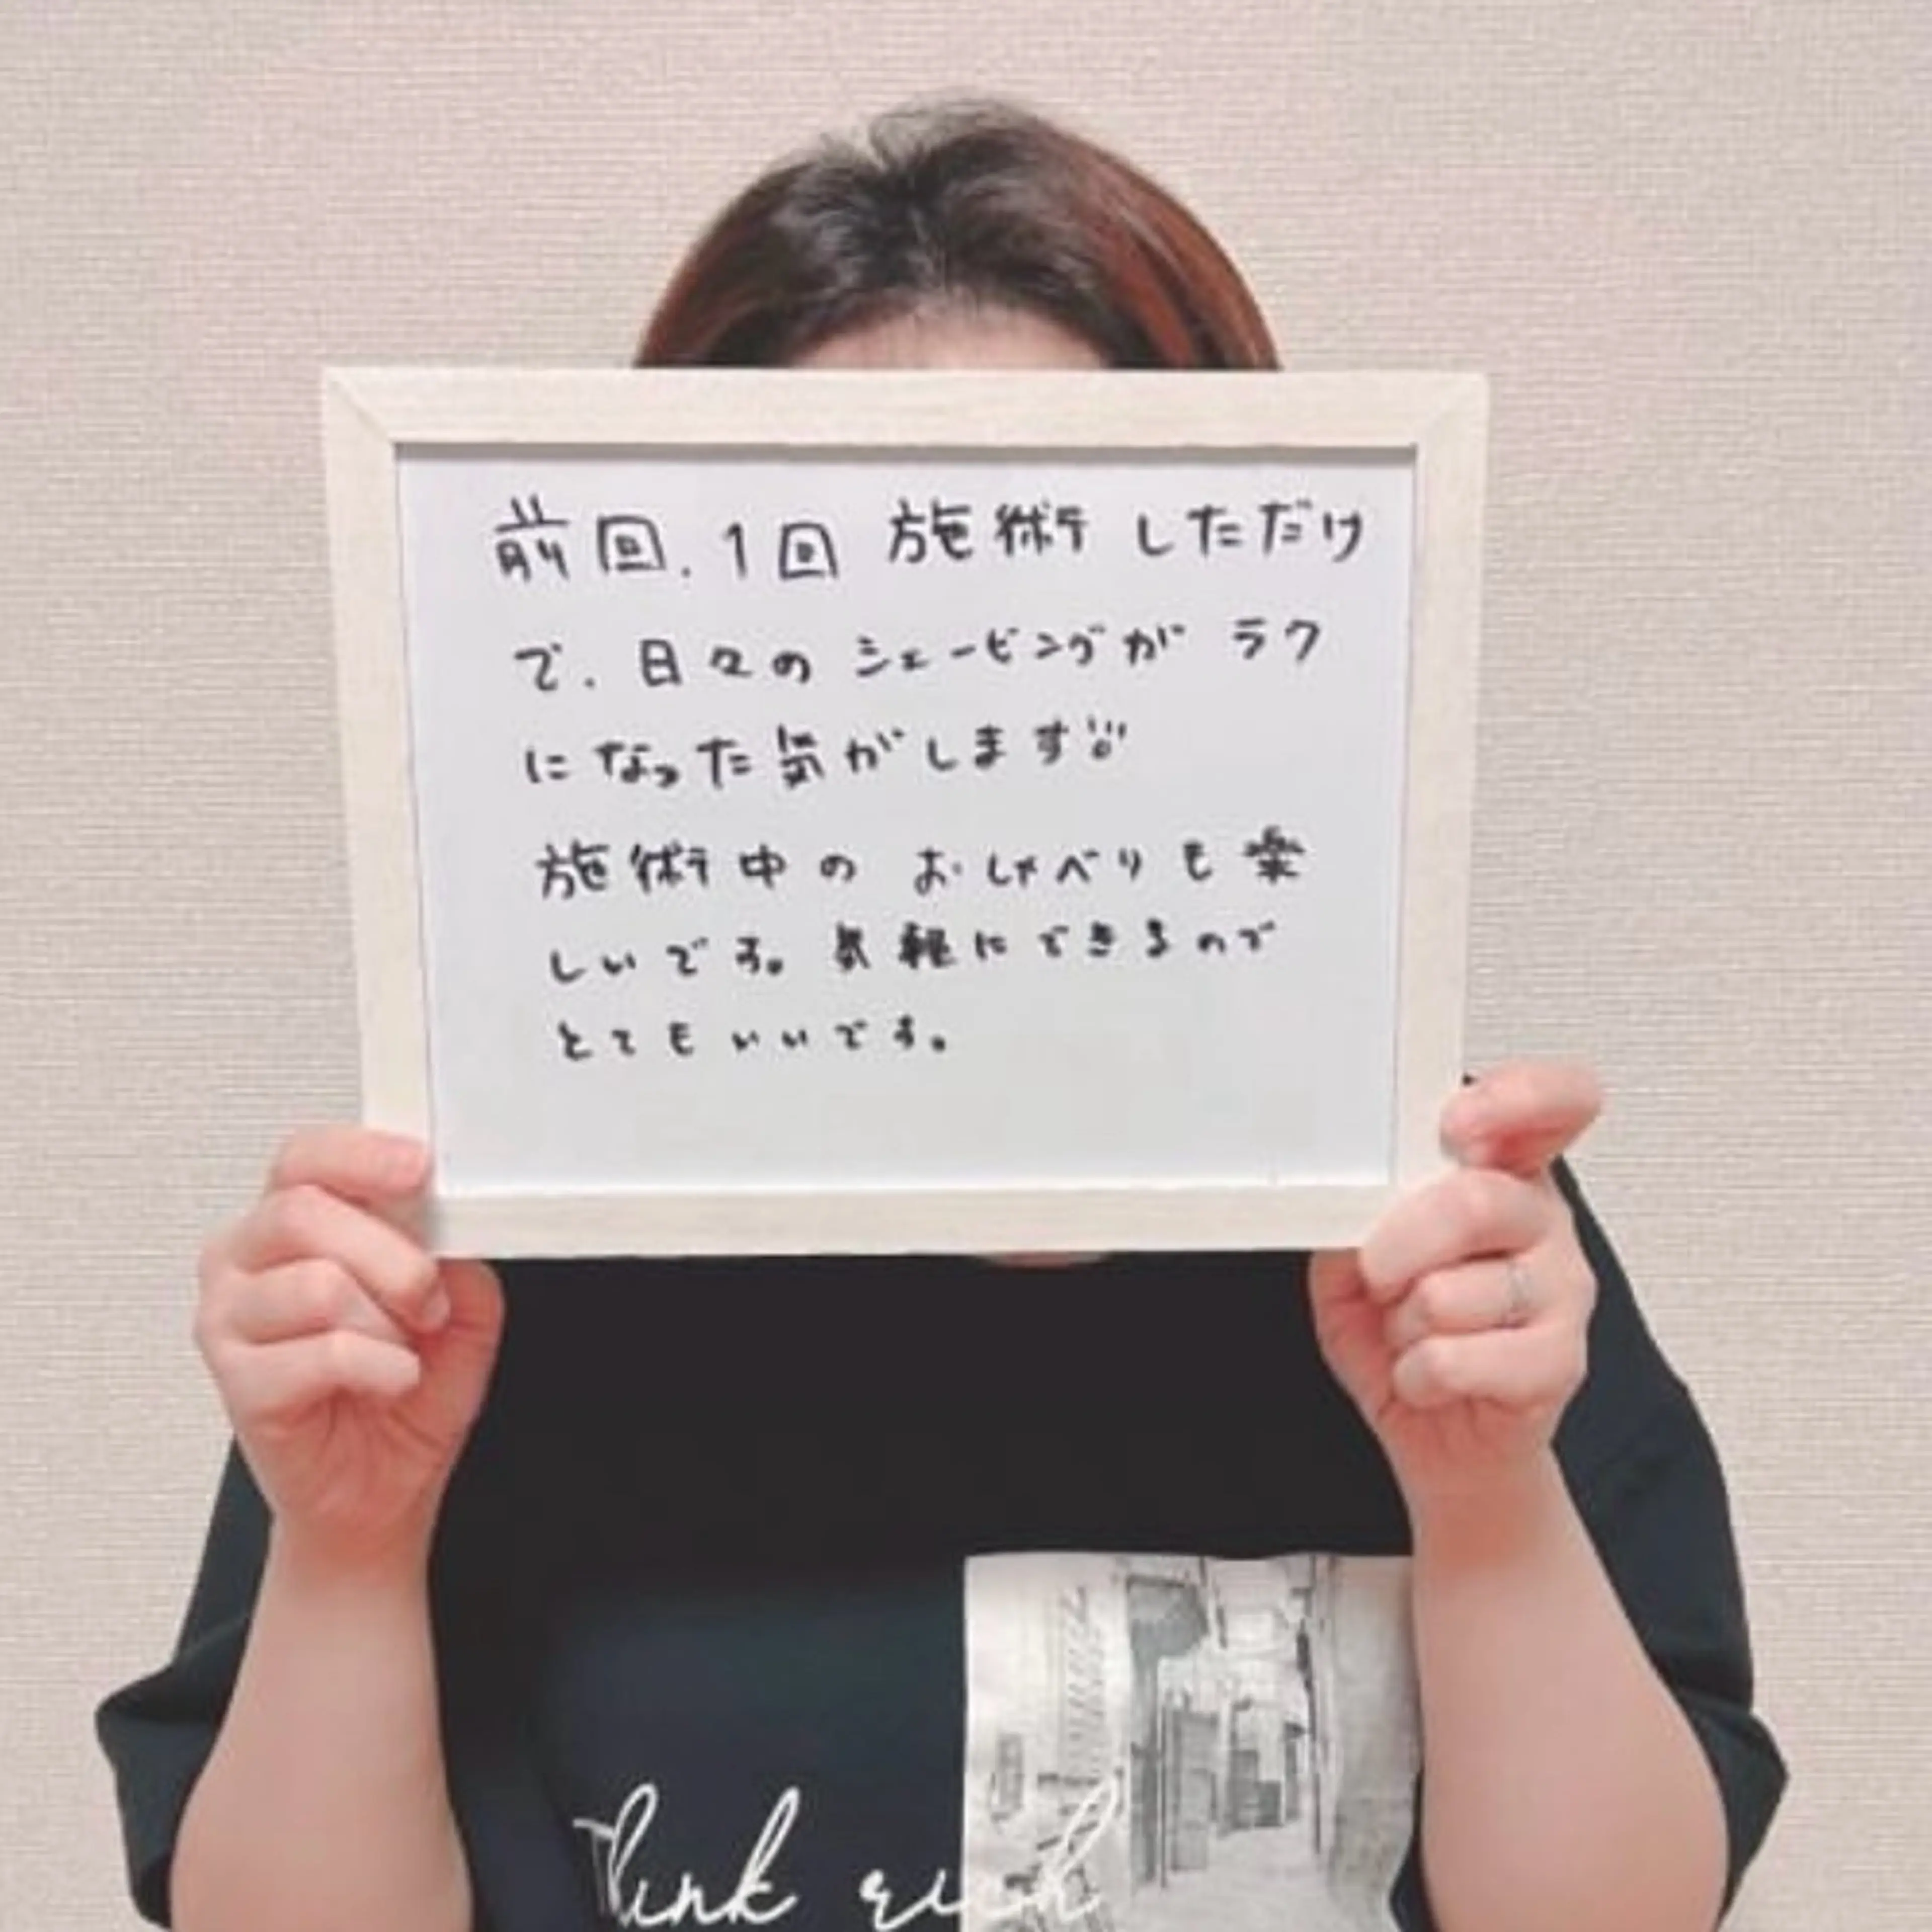 前回.1回 施術しただけ
で.日々のシェービングがラク
になった気がします!!!
施術中の おしゃべりも楽
しいです。気軽にできるので
とてもいいです。
Think rich